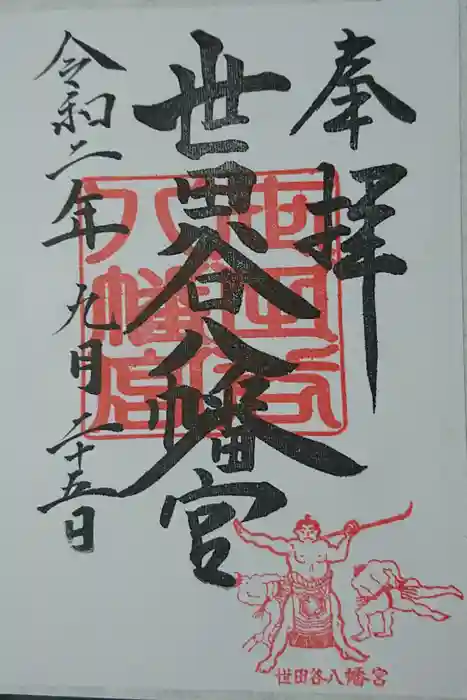 奉拝
世田谷八幡宮
令和二年 九月二十五日
世田谷
八幡宮
世田谷八幡宮